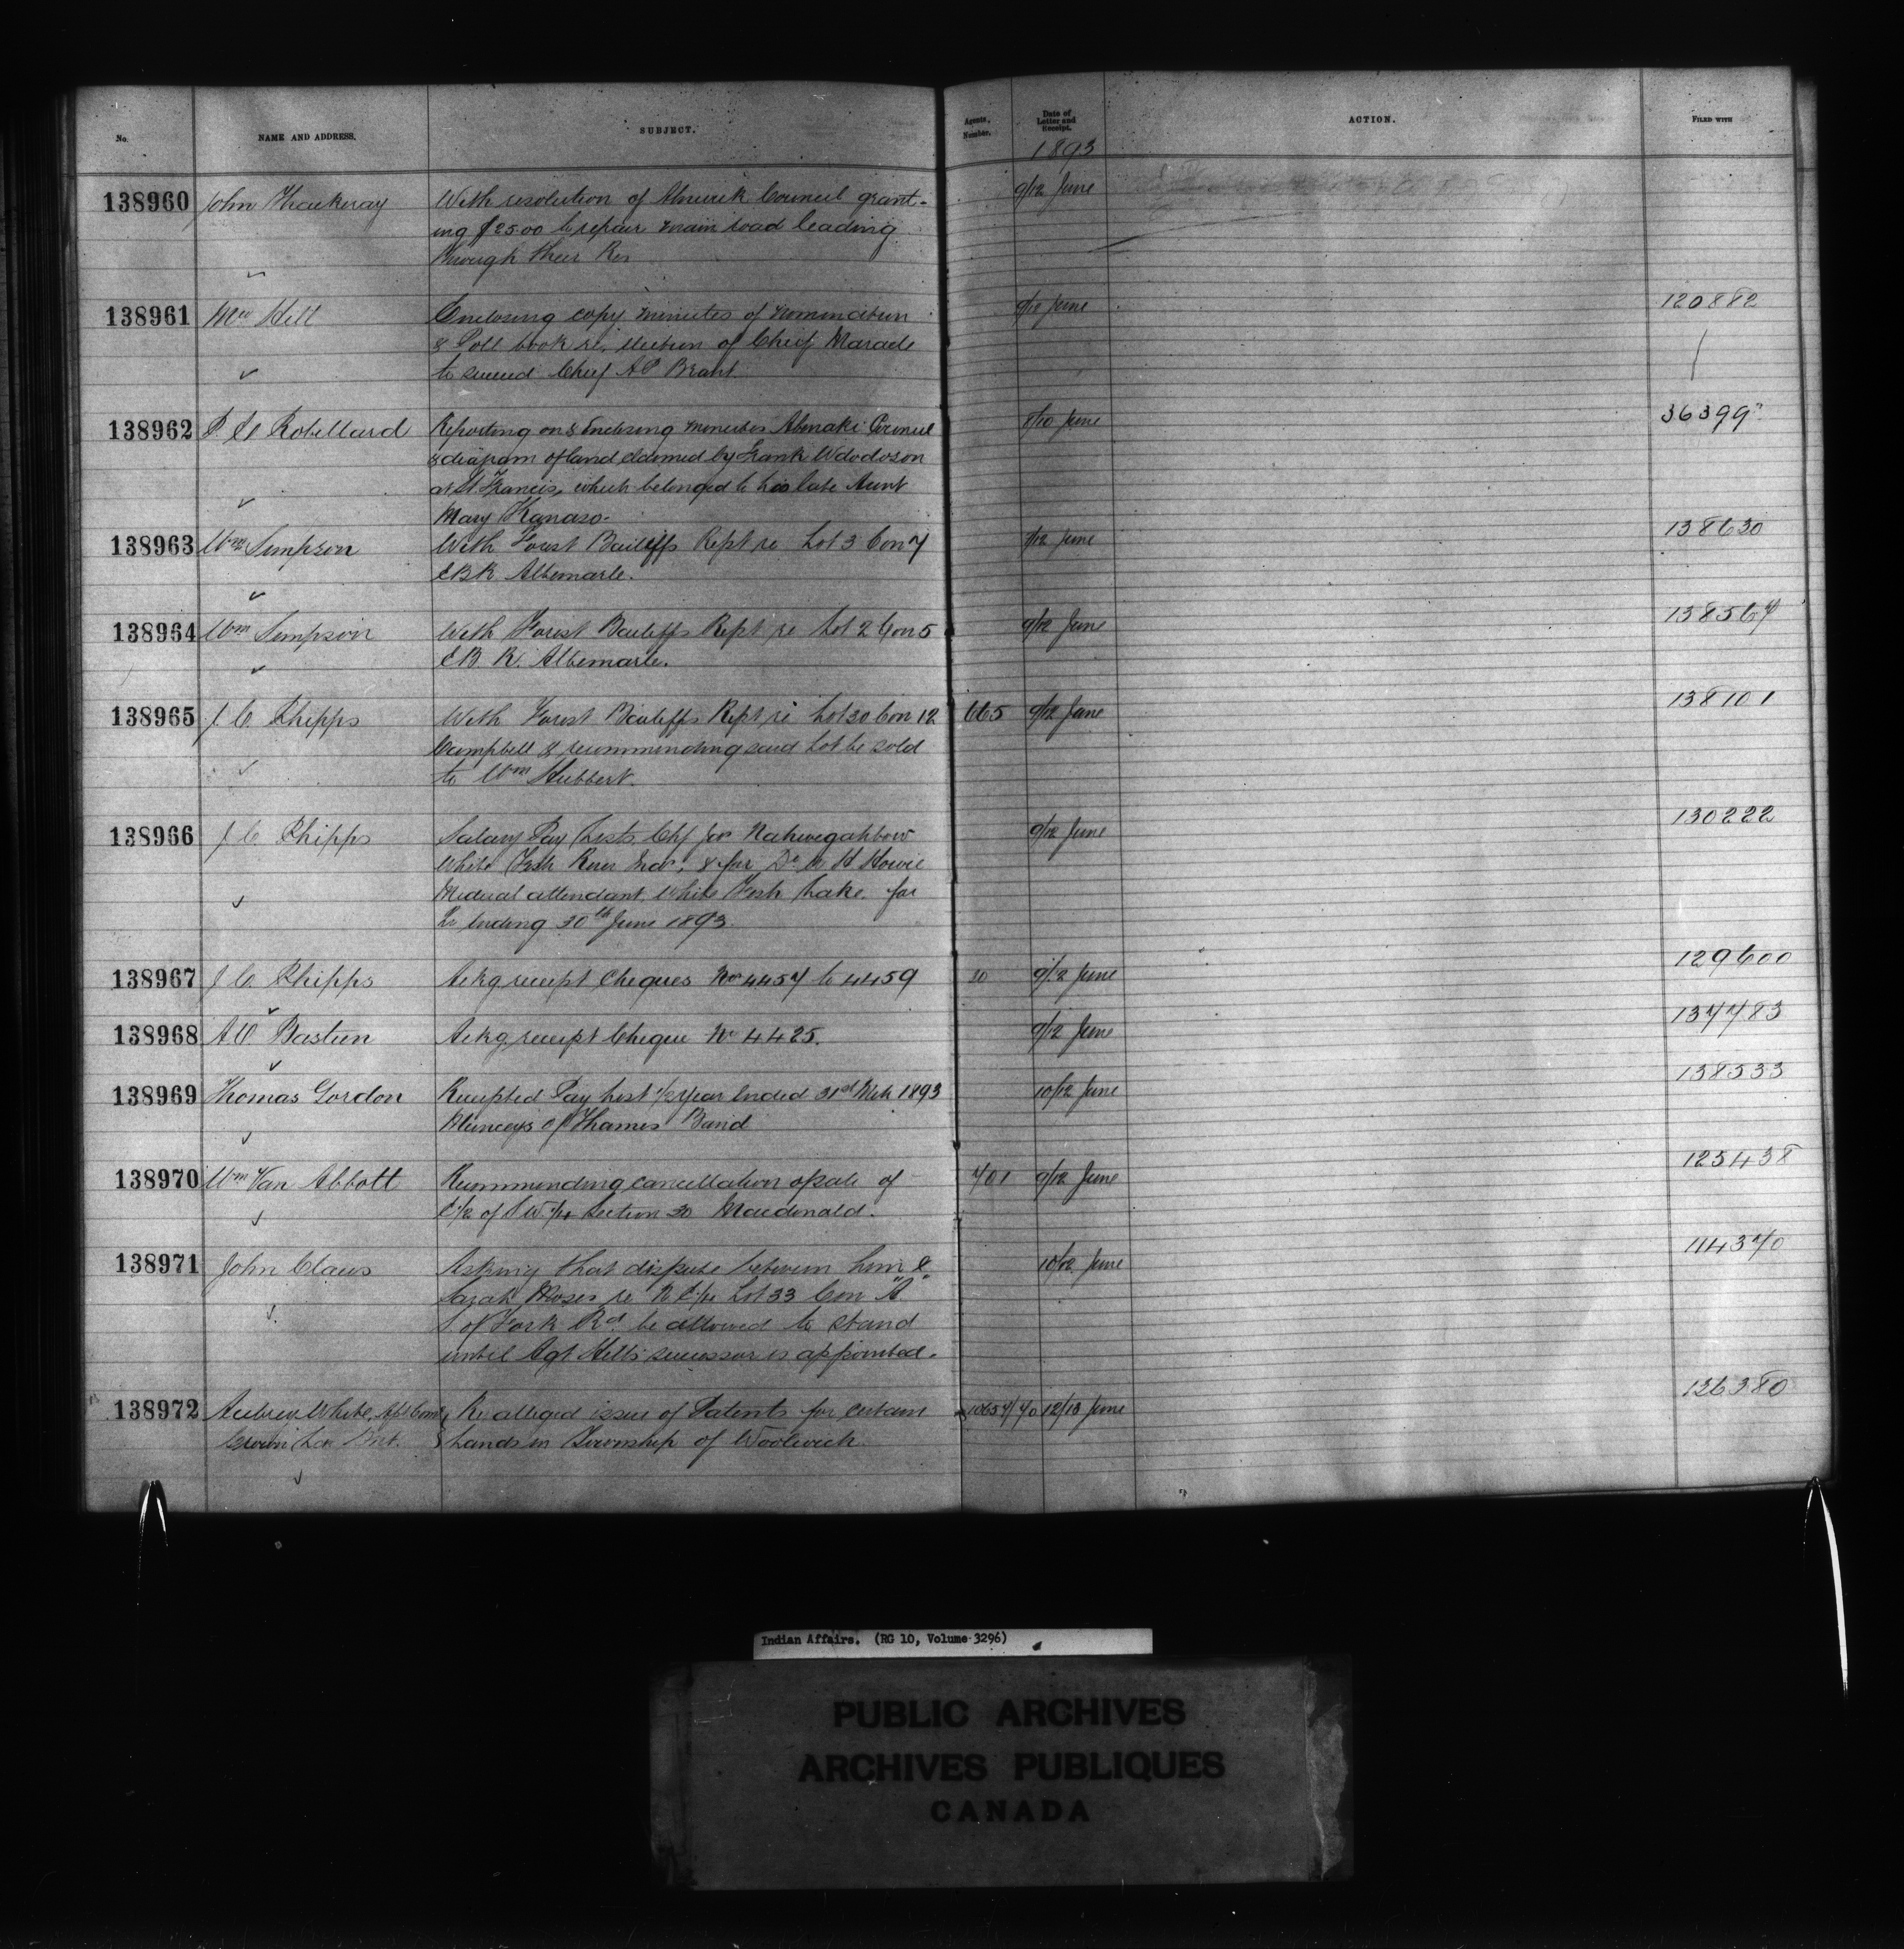 No. NAME AND ADDRESS. SUBJECT. Agents. Number. Date of Letter and Receipt. ACTION. FILED WITH
1893
138960 John Thackeray With resolution of Alnwick Council grant- 9/12 June
ing $25.00 to repair main road leading
through their Res
138961 Mw Hill Enclosing copy minutes of nomination 9/12 June 120882
& Poll book re. election of Chief Maracle
to succeed Chief A P Brant.
138962 P. E. Robillard Reporting on & Enclosing minutes Abenaki Council 8/10 June 36399
& diagram of land claimed by Frank Wdodoson
at St Francis, which belonged to his late Aunt
Mary
138963 Wm Simpson With Forest Bailiffs Rept re Lot 3 Con 7 9/12 June 138630
EBR Albemarle.
138964 Wm Simpson With Forest Bailiffs Rept re Lot 2 Con 5 9/12 June 138567
EB R. Albemarle.
138965 J. C. Phipps With Forest Bailiffs Rept re Lot 30 Con 12 665 9/12 June 138101
Campbell & recommending said Lot be sold
to Wm Hubbert.
138966 J. C. Phipps Salary Pay Lists Chf Jos Nahwegahbow 9/12 June 130222
White Fish River Inds, & for Dr H Howie
Medical attendant White Fish Lake. for
Qr Ending 30th June 1893.
138967 J. C. Phipps Ackg receipt Cheques Nos 4457 to 4459 20 9/12 June 129600
138968 A O Bastien Ackg receipt Cheque No 4425. 9/12 June 137783
138969 Thomas Gordon Receipted Pay List 1/2 year Ended 31st Mch 1893 10/12 June 138533
Munceys of Thames Band
138970 Wm Van Abbott Recommending cancellation of sale of 701 9/12 June 125438
E 1/2 of S W. 1/4 Section 30 Macdonald.
138971 John Claus Asking that dispute between him & 10/12 June 114370
Sarah Moses re N E 1/4 Lot 33 Con "A"
S. of York Rd. be allowed to stand
until Agt Hills successor is appointed.
138972 Aubrey White, Asst Comr Re alleged issue of Patents for certain 10657/70 12/13 June 126380
Crown Lan Dept. Lands in Township of Woolwich.
Indian Affairs. (RG 10, Volume 3296)
PUBLIC ARCHIVES
ARCHIVES PUBLIQUES
CANADA